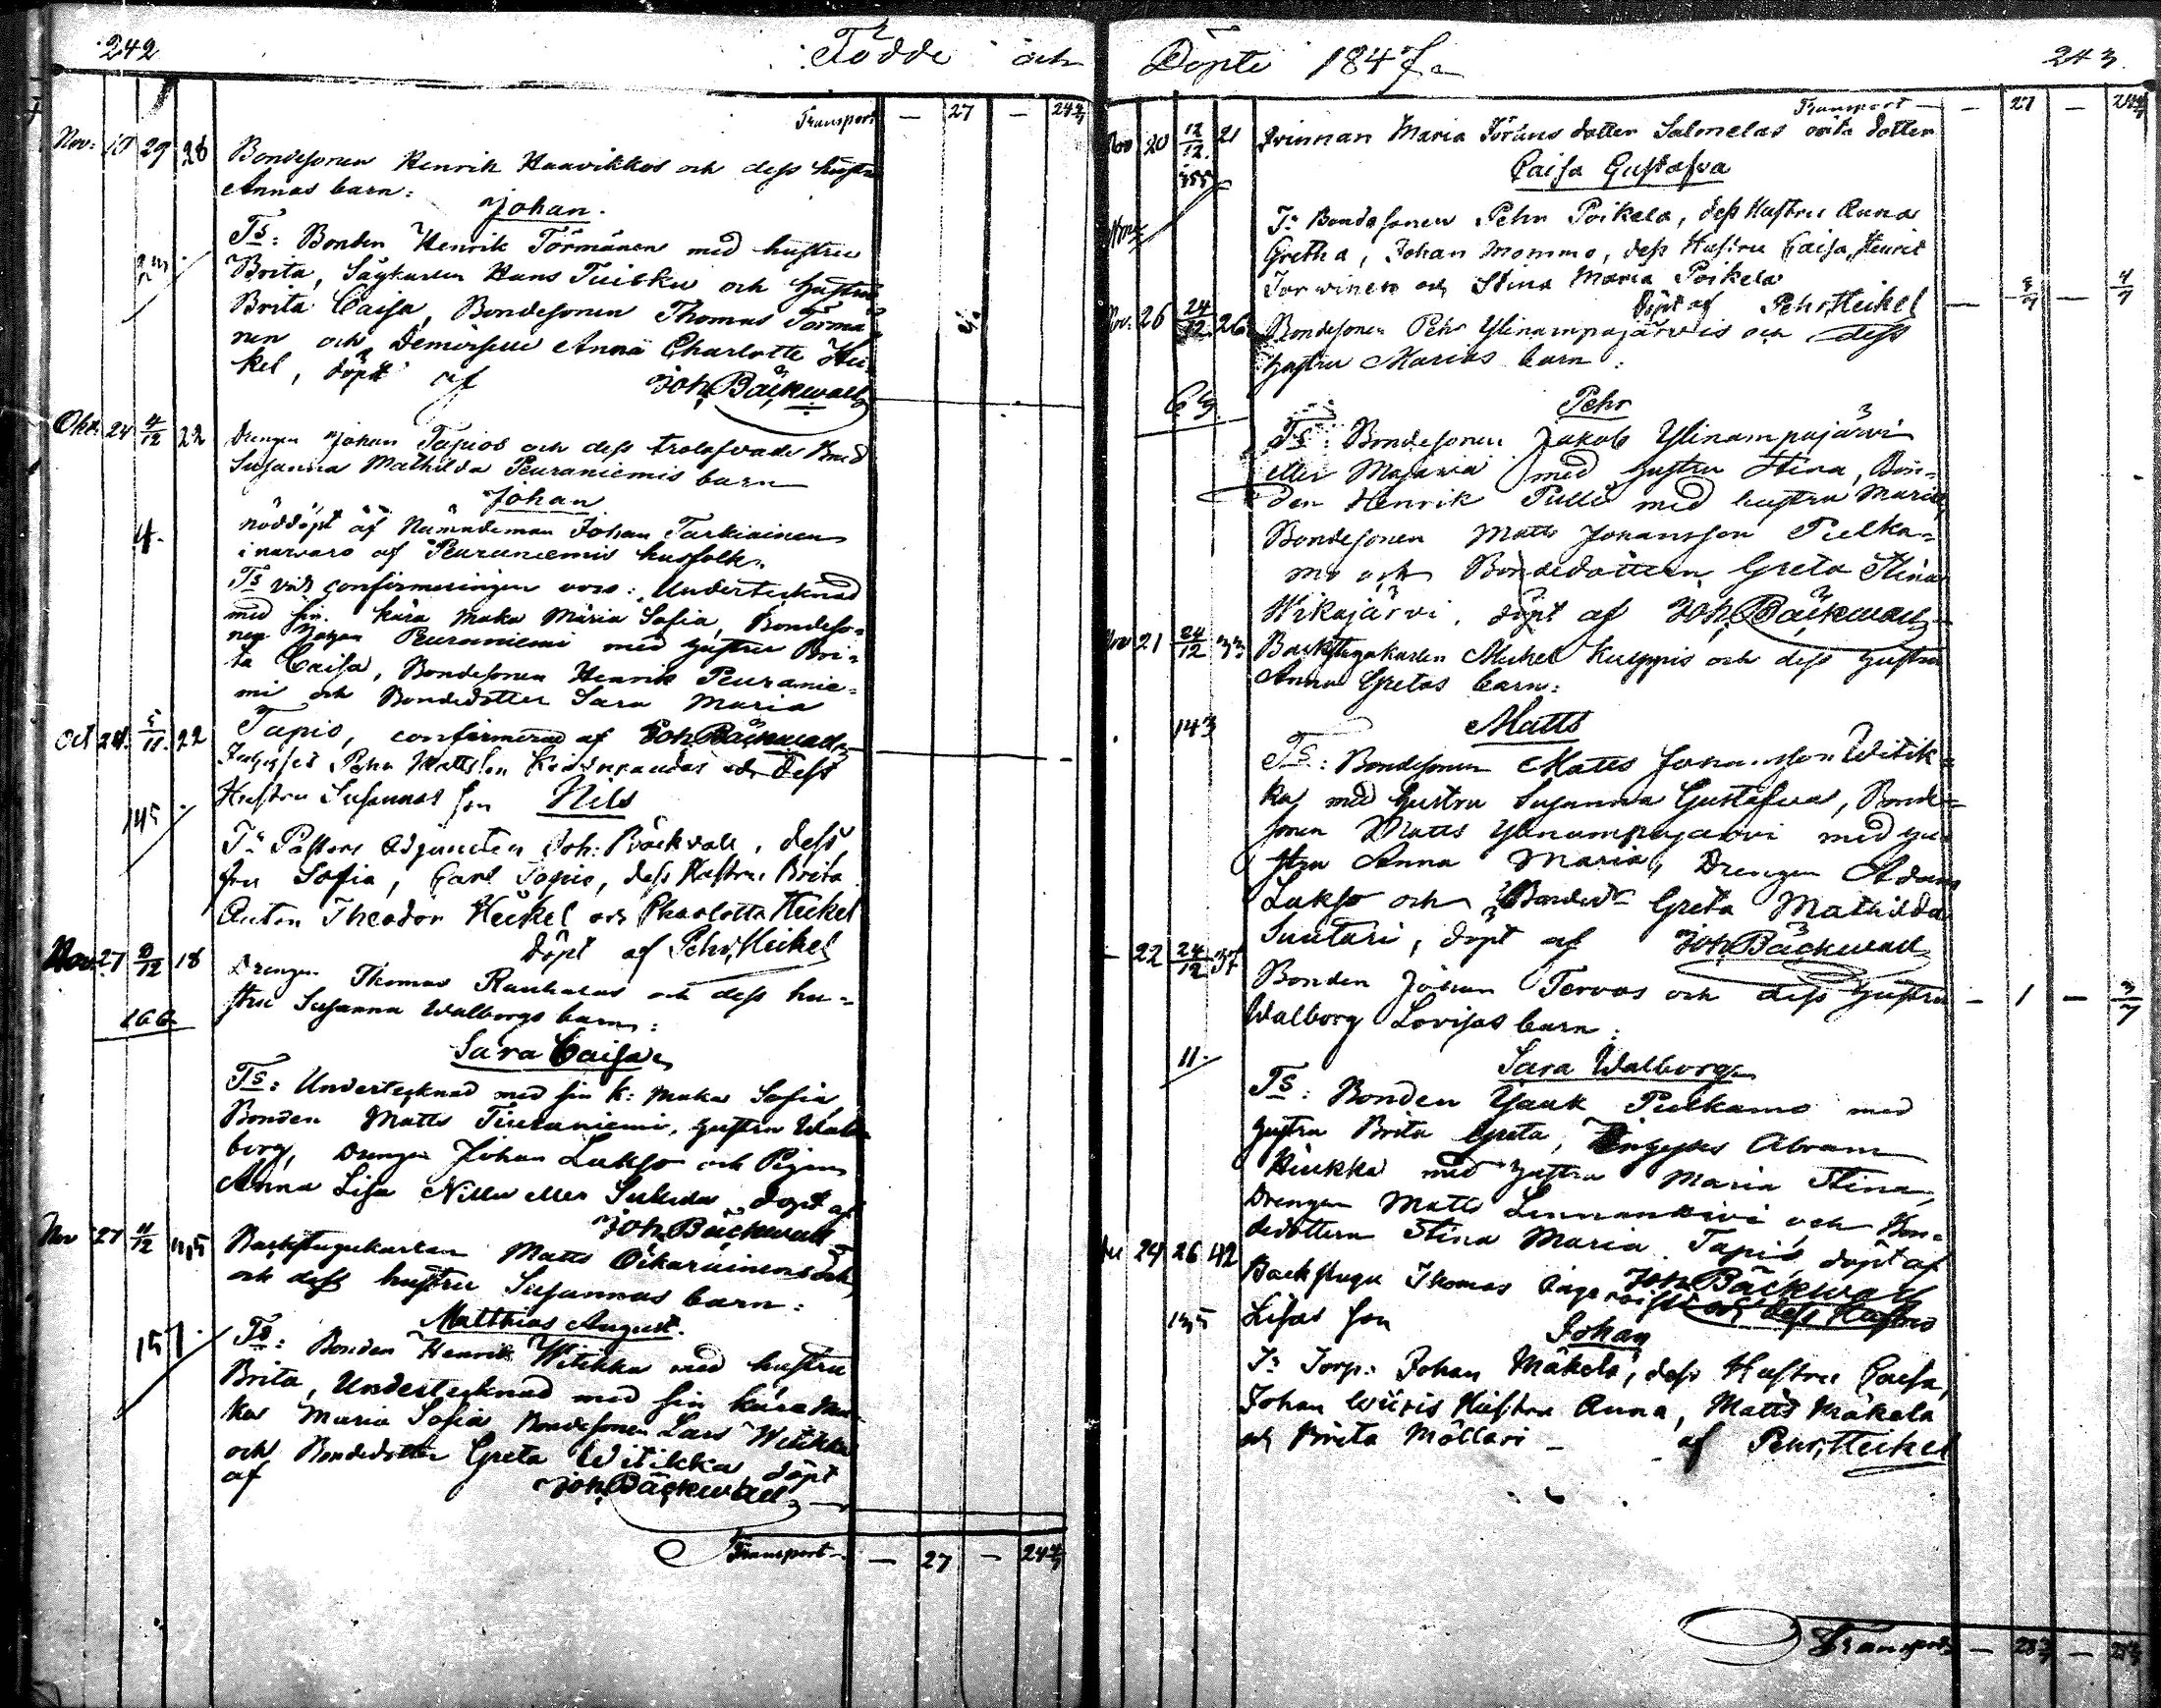 242
Födde och
Transport — 27 — 24 4/7
Nov: 29 28 Bondesonen Henrik Haavikkos och dess hustru
Annas barn:
Johan.
Ts: Bonden Henrik Törmänen med hustru
Brita, Hans Tuisku och hustru
Brita Caisa, Bondesonen Thomas Törmä
nen och Demoiselle Anna Charlotte Hei
kel, döpt af Joh. Bäckwall
Okt. 24 4/12 22 Drengen Johan Tapios och dess trolofvade
Susanna Mathilda Peuraniemis barn
Johan
4.
nöddöpt af Nämndeman Johan Tarkiainen
i närvaro af Peuraniemis husfolk.
Ts vid confirmeringen voro: Undertecknad
med sin kära maka Maria Sofia, Bondeso-
nen Peuraniemi med hustru Bri-
ta Caisa, Bondesonen Henrik Peuranie-
mi och Bondedotter Sara Maria
Tapio, confirmerad af Joh. Bäckwall
Oct 24. 5/11. 22 Pehr Mattsson och dess
Hustru Susannas son Nils
145
Ts Pastors Adjuncten Joh: Bäckvall, dess
fru Sofia, Carl Tapio, dess Hustru Brita
Anton Theodor Heikel och Charlotta Heikel
döpt af Pehr Heikel
Nov. 27 12 18 Drengen Thomas Rauhalas och dess hu-
stru Susanna Walborgs barn:
166
Sara Caisa
Ts: Undertecknad med sin k: maka Sofia
Bonden Matts Peuraniemi, hustru Wal-
borg, Drengen Johan Lukso och Pigan
Anna Lisa Nilla eller döpt af
Joh. Bäckwall
Nov 27 4/12 Backstugukarlen Matts Oikarainens
och dess hustru Susannas barn:
Matthias August.
157
Ts: Bonden Henrik Witikka med hustru
Brita, Undertecknad med sin kära Ma-
ka Maria Sofia Bondesonen Lars Witikka
och Bondedotter Greta Witikka döpt
af Joh. Bäckwall
Transport — 27 — 24 4/7
Döpte 1847.
243
Transport — 27 — 24 4/7
Nov 20 12/12. 21 Qvinnan Maria Görans dotter Salmelas oäkta dotter
Caisa Gustafva
355
Ts Bondesonen Pehr Poikela, dess Hustru Anna
Gretha, Johan Mommo, dess Hustru Caisa, Henrik
Torvinen och Stina Maria Poikela
döpt af Pehr Heikel
Nov. 26 24/12 26 Bondesonen Pehr Ylinampajärvis och dess
hustru Marias barn:
Pehr
Ts: Bondesonen Jakob Ylinampajärvi
eller Majavia med hustru Stina, Bon-
den Henrik Pulli med hustru Maria
Bondesonen Matts Johansson Pulka-
mo och Bondedottern Greta Stina
Wikajärvi, döpt af Joh. Bäckwall
Nov 21 24/12 33 Backstugukarlen Mickel Kuoppis och dess hustru
Anna Gretas barn:
143
Matts
Ts: Bondesonen Matts Johansson Witik-
ka med hustru Susanna Gustafva, Bonde-
sonen Matts Ylinampajärvi med hu-
stru Anna Maria, Drengen Adam
Lukso och Bonded. Greta Mathilda
Suutari, döpt af Joh. Bäckwall
22 24/12 37 Bonden Johan Tervos och dess hustru — 1 — 3/7
Walborg Lovisas barn:
11.
Sara Walborg
Ts: Bonden Isak Pulkamo med
hustru Brita Greta, Inhyses Abram
Kiukka med hustru Maria Stina,
Drengen Matts Linnankivi och Bon-
dedottern Stina Maria Tapio, döpt af
Joh. Bäckwall
24 26 42 Backstugu Thomas och dess Hustru
135 Lisas son
Johan
Ts Torp: Johan Mäkelä, dess Hustru Caisa,
Johan Hustru Anna, Matts Mäkelä
och Brita Möllari — af Pehr Heikel
Transport —